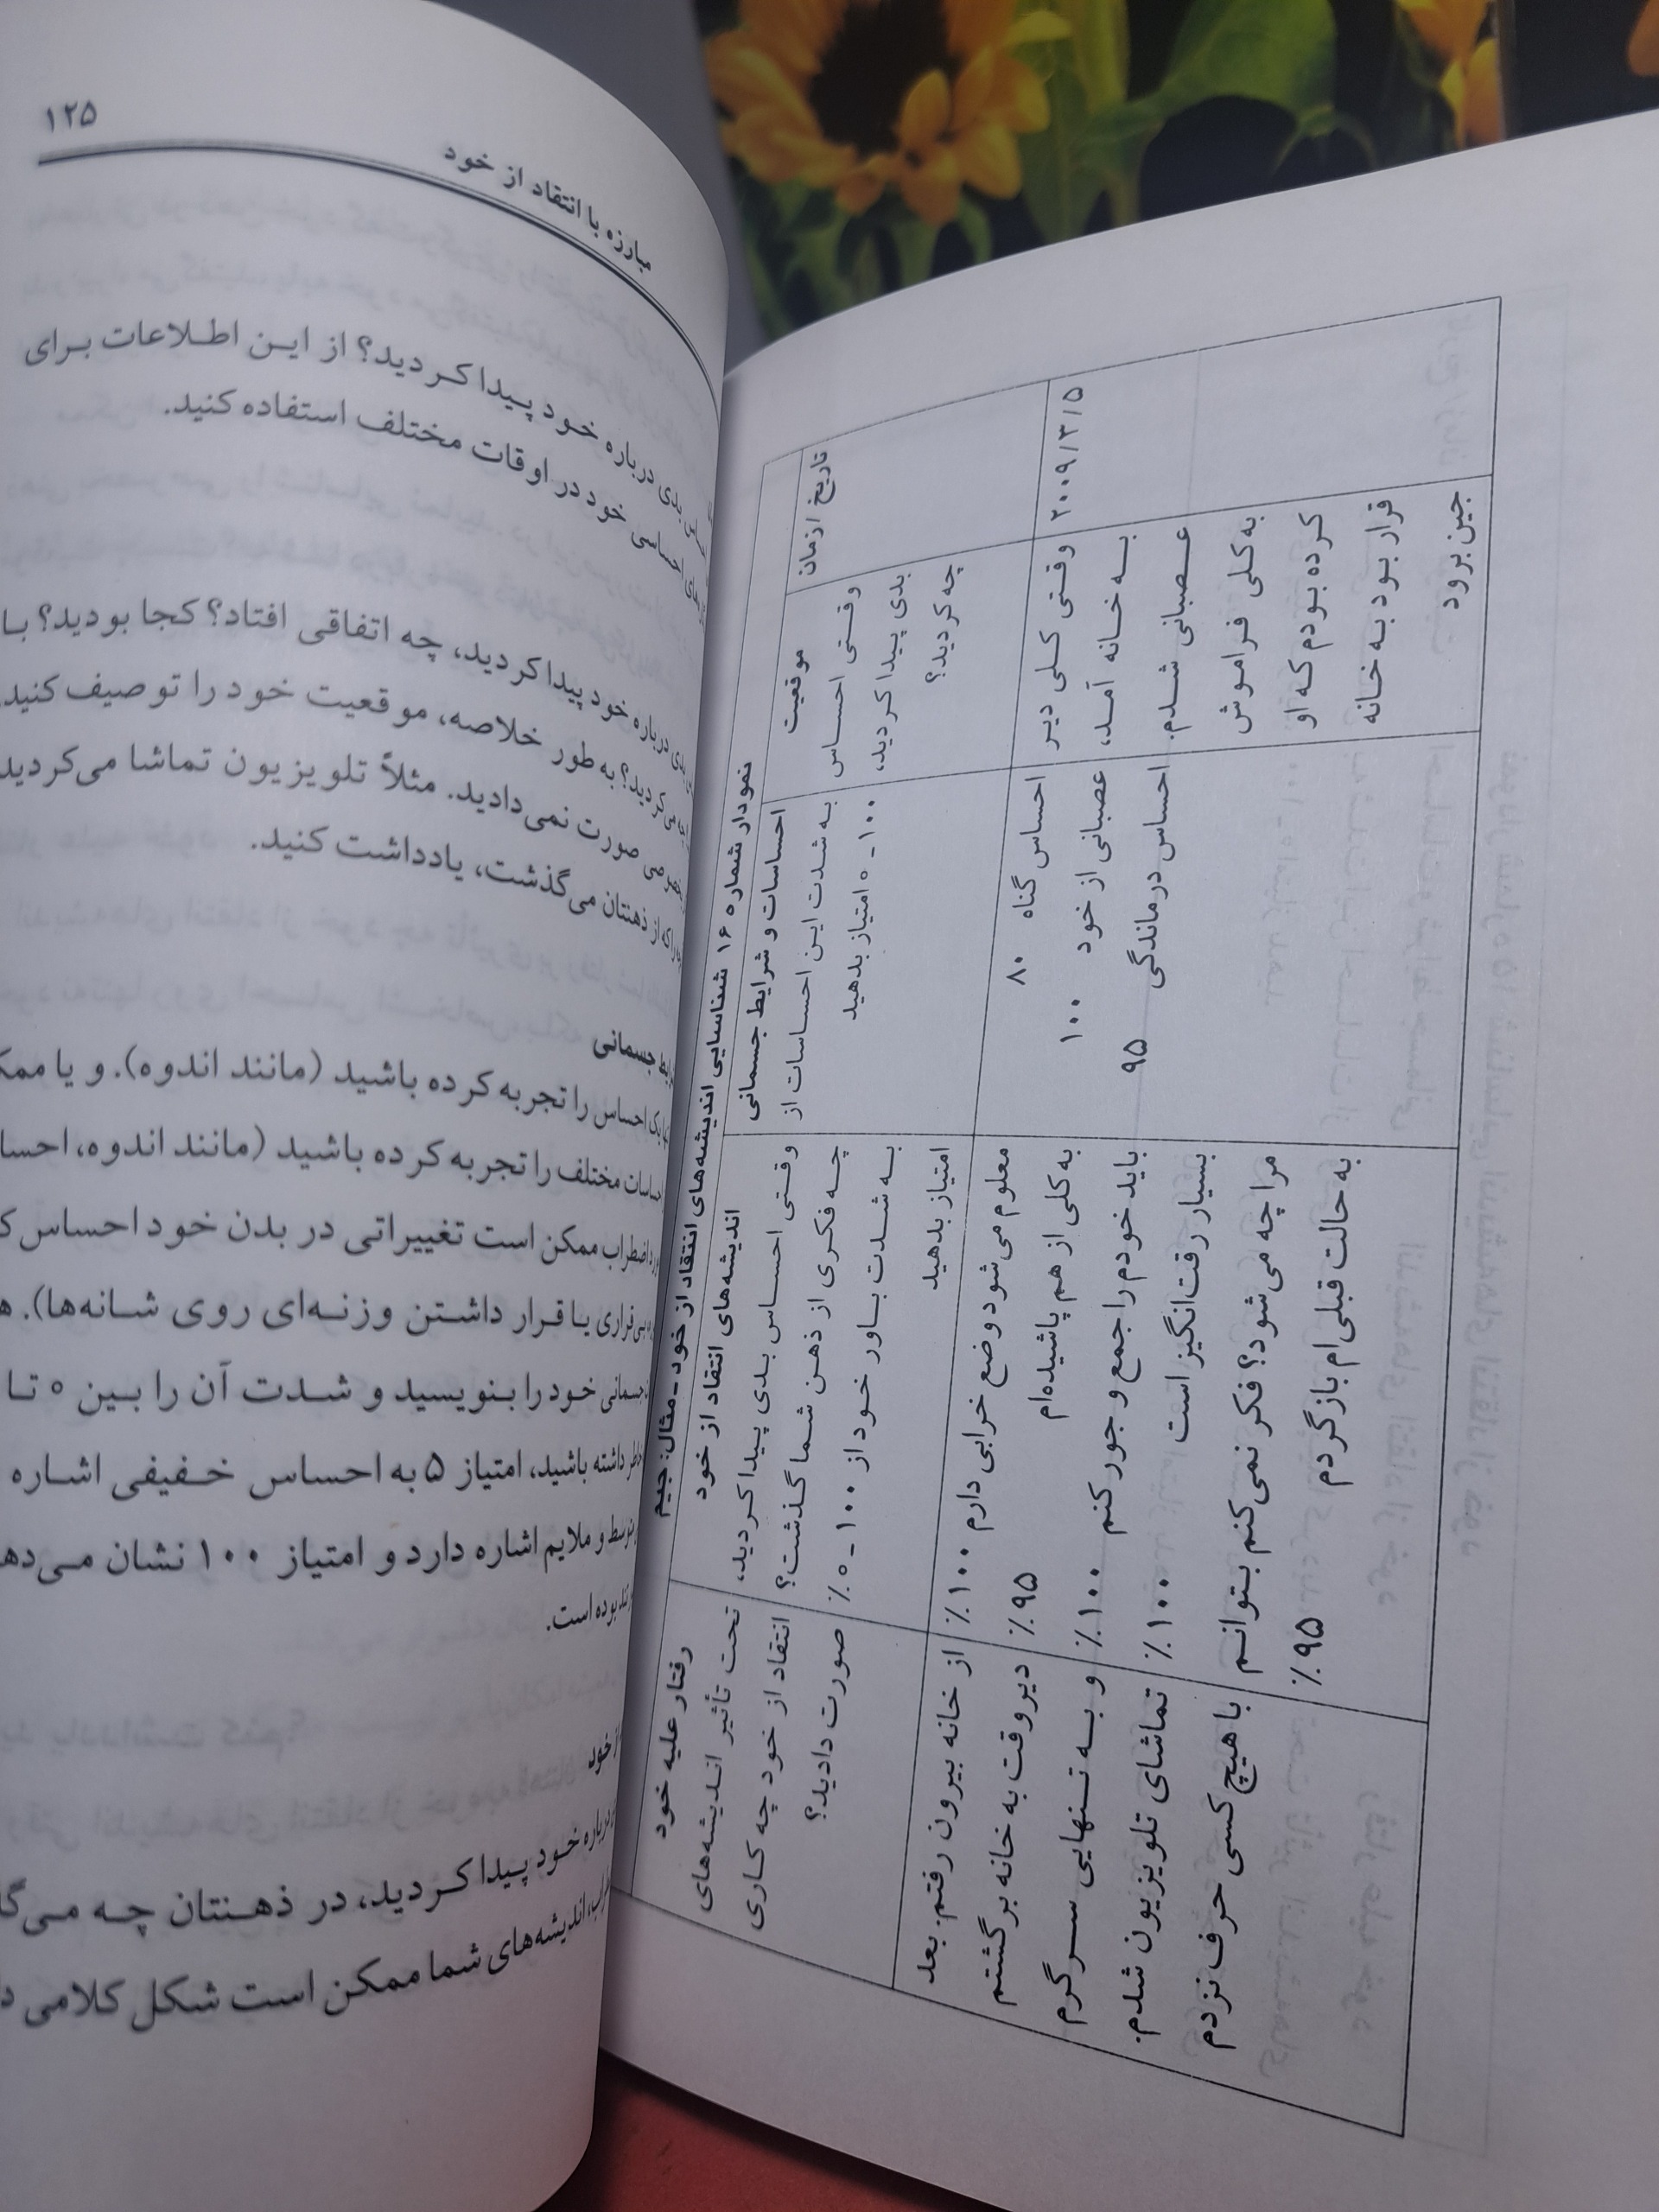 ۱۲۵
مبارزه با انتقاد از خود
بدی درباره خود پیدا کردید؟ از این اطلاعات برای
احساسی خود در اوقات مختلف استفاده کنید.
بدی درباره خود پیدا کردید، چه اتفاقی افتاد؟ کجا بودید؟ با
می‌کردید؟ به طور خلاصه، موقعیت خود را توصیف کنید
صورت نمی‌دادید. مثلاً تلویزیون تماشا می‌کردید
را که از ذهنتان می‌گذشت، یادداشت کنید.
جسمانی
یک احساس را تجربه کرده باشید (مانند اندوه). و یا
مختلف را تجربه کرده باشید (مانند اندوه،
اضطراب ممکن است تغییراتی در بدن خود احساس
بی‌قراری یا قرار داشتن وزنه‌ای روی شانه‌ها).
جسمانی خود را بنویسید و شدت آن را بین ۰ تا
داشته باشید، امتیاز ۵ به احساس خفیفی اشاره
متوسط و ملایم اشاره دارد و امتیاز ۱۰۰ نشان
بوده است.
از خود
درباره خود پیدا کردید، در ذهنتان چه
اندیشه‌های شما ممکن است شکل کلامی
نمودار شماره ۱۶ شناسایی اندیشه‌های انتقاد از خود - مثال: جیم
تاریخ / زمان
موقعیت
وقتی احساس
بدی پیدا کردید،
چه کردید؟
احساسات و شرایط جسمانی
به شدت این احساسات از
۰ - ۱۰۰ امتیاز بدهید
اندیشه‌های انتقاد از خود
وقتی احساس بدی پیدا کردید،
چه فکری از ذهن شما گذشت؟
به شدت باور خود از ۱۰۰ - ۰٪
امتیاز بدهید
رفتار علیه خود
تحت تأثیر اندیشه‌های
انتقاد از خود چه کاری
صورت دادید؟
۲۰۰۹/۳/۵
وقتی کلی دیر
به خانه آمد،
عصبانی شدم.
به کلی فراموش
کرده بودم که او
قرار بود به خانه
جین برود
احساس گناه ۸۰
عصبانی از خود ۱۰۰
احساس درماندگی ۹۵
معلوم می‌شود وضع خرابی دارم ۱۰۰٪
به کلی از هم پاشیده‌ام ۹۵٪
باید خودم را جمع و جور کنم ۱۰۰٪
بسیار رقت‌انگیز است ۱۰۰٪
مرا چه می‌شود؟ فکر نمی‌کنم بتوانم
به حالت قبلی‌ام بازگردم ۹۵٪
از خانه بیرون رفتم. بعد
دیروقت به خانه برگشتم
و به تنهایی سرگرم
تماشای تلویزیون شدم.
با هیچ کسی حرف نزدم